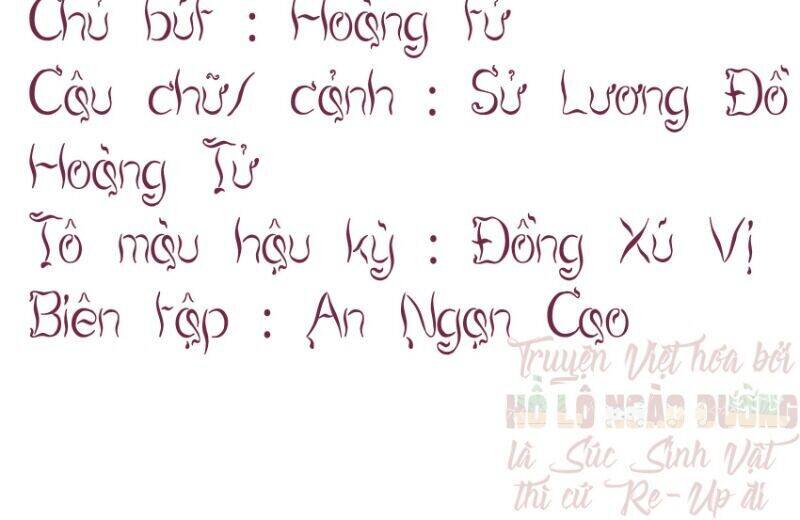 Chủ bút : Hoàng Tử
Câu chữ/ cảnh : Sử Lương Đồ
Hoàng Tử
Tô màu hậu kỳ : Đồng Xú Vị
Biên tập : An Ngạn Cao
Truyện Việt hóa bởi
HỒ LÔ NGÀO ĐƯỜNG
là Súc Sinh Vật
thì cứ Re-Up đi